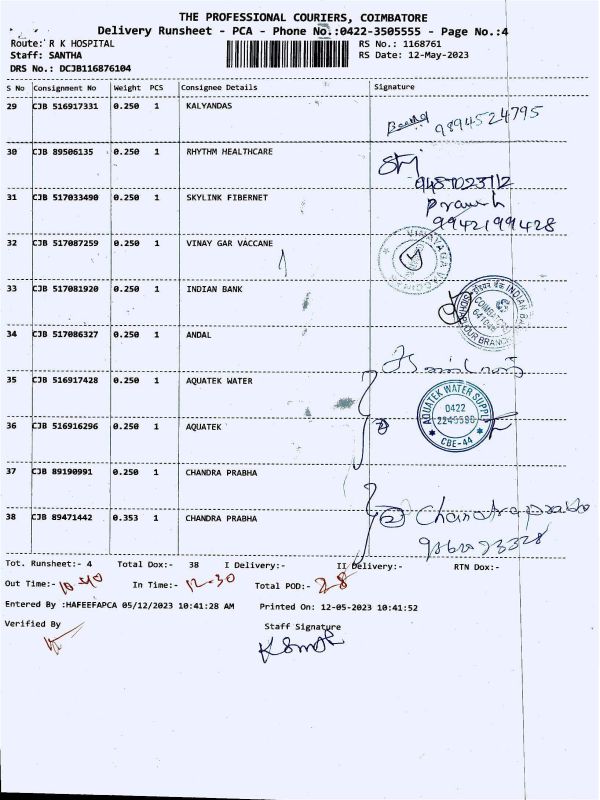 THE PROFESSIONAL COURIERS, COIMBATORE
Delivery Runsheet - PCA - Phone No.:0422-3505555 - Page No.:4
Route: R K HOSPITAL RS No.: 1168761
Staff: SANTHA RS Date: 12-May-2023
DRS No.: DCJB116876104
S No Consignment No Weight PCS Consignee Details Signature
29 CJB 516917331 0.250 1 KALYANDAS
9894524795
30 CJB 89506135 0.250 1 RHYTHM HEALTHCARE
31 CJB 517033490 0.250 1 SKYLINK FIBERNET
9942199428
32 CJB 517087259 0.250 1 VINAY GAR VACCANE
33 CJB 517081920 0.250 1 INDIAN BANK
34 CJB 517086327 0.250 1 ANDAL
35 CJB 516917428 0.250 1 AQUATEK WATER
AQUATEK WATER SUPPLY
0422
CBE-44
36 CJB 516916296 0.250 1 AQUATEK
37 CJB 89190991 0.250 1 CHANDRA PRABHA
38 CJB 89471442 0.353 1 CHANDRA PRABHA
② Chandraprabha
Tot. Runsheet:- 4 Total Dox:- 38 I Delivery:- II Delivery:- RTN Dox:-
Out Time:- 10-40 In Time:- 12-30 Total POD:- 28
Entered By :HAFEEFAPCA 05/12/2023 10:41:28 AM Printed On: 12-05-2023 10:41:52
Verified By Staff Signature